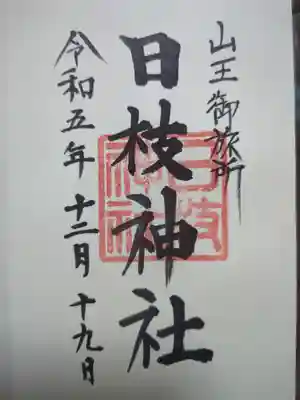 山王御旅所
日枝神社
日枝神社
令和五年 十二月 十九日